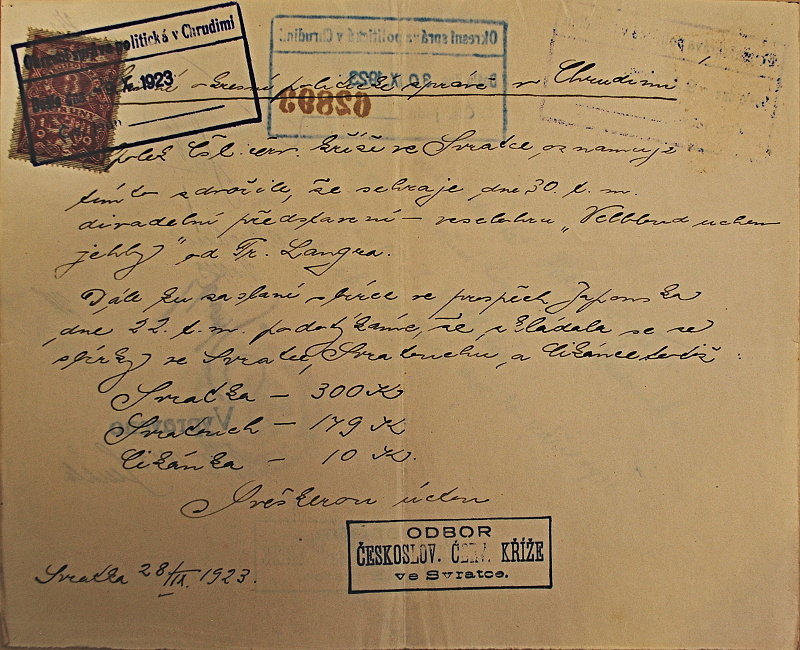 Okresní správa politická v Chrudimi
Okresní správa politická v Chrudimi
1923
62899
okresní politické správě v Chrudimi
Čsl. červ. kříže ve Svratce, oznamuje
tímto zdvořile, že sehraje dne 30. t. m.
divadelní představení – veselohru „Velbloud uchem
jehly" od Fr. Langra.
Dále ku zaslané sbírce ve prospěch Japonska
dne 22. t. m. podotýkáme, že skládala se ze
sbírky ve Svratce, Svratouchu, a Cikánce totiž:
Svratka – 300 K
Svratouch – 179 K
Cikánka – 10 K.
Vypraveno
Veškerou úctou
ODBOR
ČESKOSLOV. ČERV. KŘÍŽE
ve Svratce.
Svratka 28/IX. 1923.